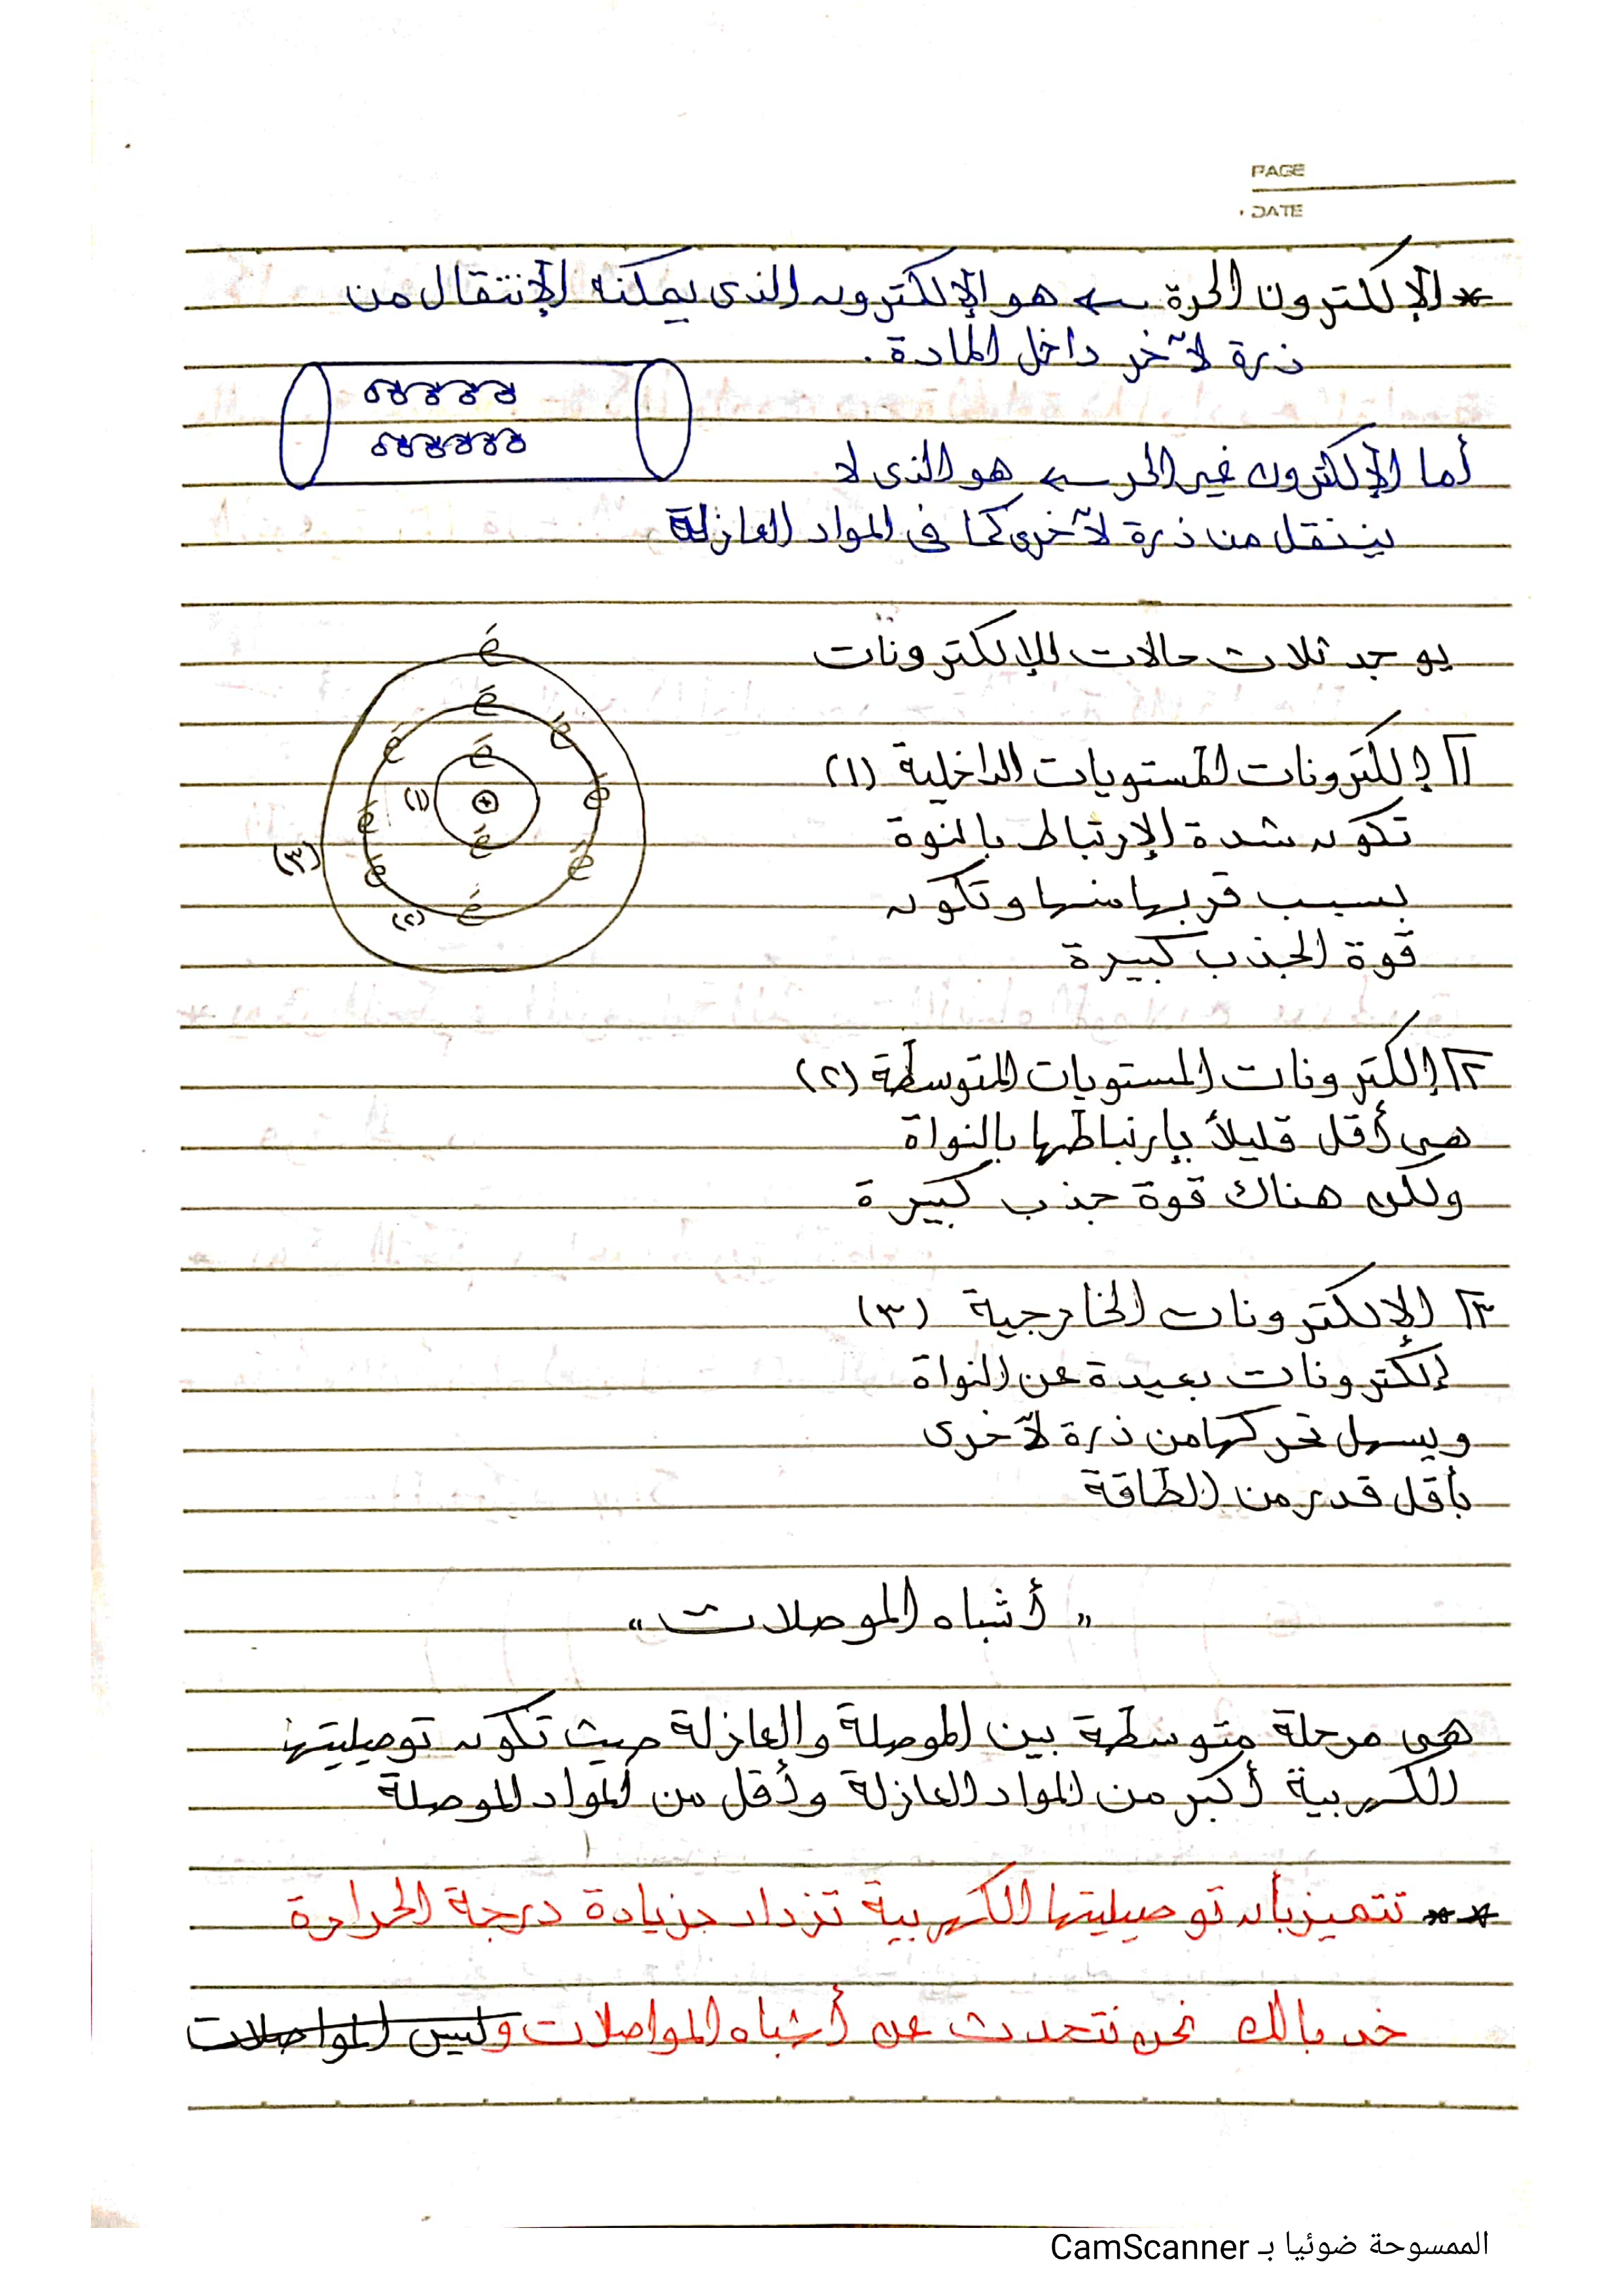 PAGE
DATE
* الإلكترون الحرة ← هو الإلكترون الذى يمكنه الإنتقال من
ذرة لآخر داخل المادة.
أما الإلكترون غير الحر ← هو الذى لا
ينتقل من ذرة لآخرى كما فى المواد العازلة
يوجد ثلاث حالات للإلكترونات
١ إلكترونات المستويات الداخلية (١)
تكون شدة الإرتباط بالنوة
بسبب قربها منها وتكون
قوة الجذب كبيرة
e
e
e
e
e
e
e
e
e
e
e
(١)
+
(٢)
(٣)
٢ إلكترونات المستويات المتوسطة (٢)
هى أقل قليلاً بإرتباطها بالنواة
ولكن هناك قوة جذب كبيرة
٣ الإلكترونات الخارجية (٣)
إلكترونات بعيدة عن النواة
ويسهل تحركها من ذرة لآخرى
بأقل قدر من الطاقة
" أشباه الموصلات "
هى مرحلة متوسطة بين الموصلة والعازلة حيث تكون توصيليتها
الكهربية أكبر من المواد العازلة وأقل من المواد الموصلة
** تتميز بأن توصيليتها الكهربية تزداد بزيادة درجة الحرارة
خد بالك نحن نتحدث عن أشباه المواصلات وليس المواصلات
الممسوحة ضوئيا بـ CamScanner